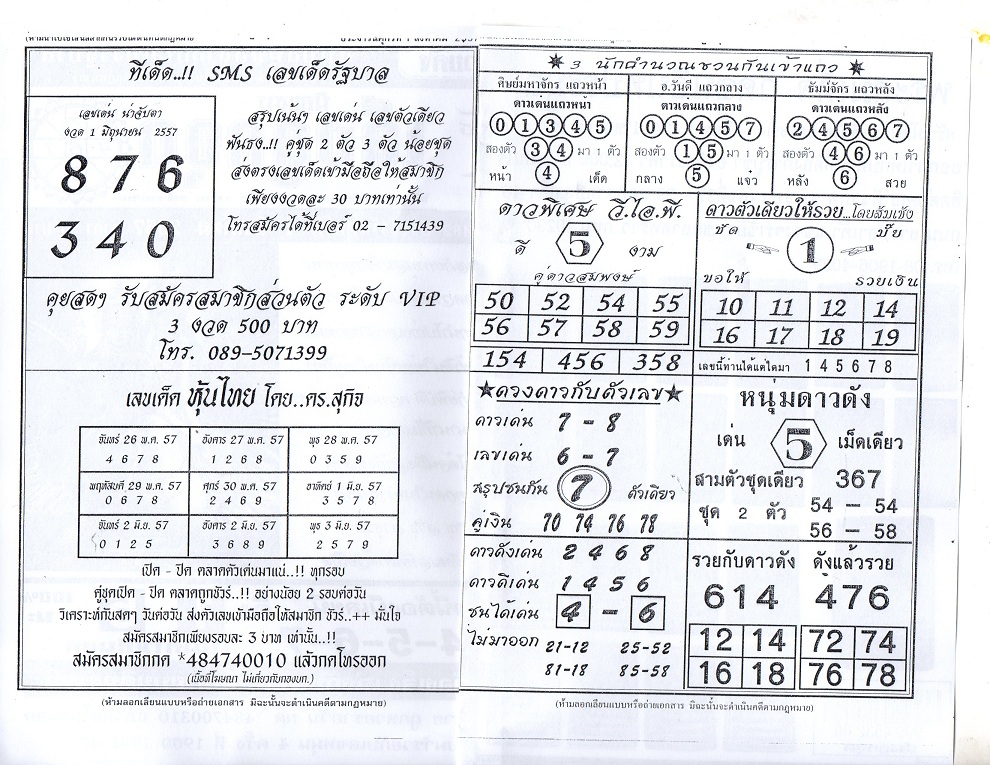 ทีเด็ด..!! SMS เลขเด็ดรัฐบาล
เลขเด่น น่าจับตา
งวด 1 มิถุนายน 2557
876
340
สรุปเน้นๆ เลขเด่น เลขตัวเดียว
ฟันธง..!! คู่ชุด 2 ตัว 3 ตัว น้อยชุด
ส่งตรงเลขเด็ดเข้ามือถือให้สมาชิก
เพียงงวดละ 30 บาทเท่านั้น
โทรสมัครได้ที่เบอร์ 02 - 7151439
คุยสดๆ รับสมัครสมาชิกส่วนตัว ระดับ VIP
3 งวด 500 บาท
โทร. 089-5071399
เลขเด็ด หุ้นไทย โดย..ดร.สุกิจ
จันทร์ 26 พ.ค. 57 อังคาร 27 พ.ค. 57 พุธ 28 พ.ค. 57
4 6 7 8 1 2 6 8 0 3 5 9
พฤหัสบดี 29 พ.ค. 57 ศุกร์ 30 พ.ค. 57 อาทิตย์ 1 มิ.ย. 57
0 6 7 8 2 4 6 9 3 5 7 8
จันทร์ 2 มิ.ย. 57 อังคาร 2 มิ.ย. 57 พุธ 3 มิ.ย. 57
0 1 2 5 3 6 8 9 2 5 7 9
เปิด - ปิด ตลาดตัวเด่นมาแน่..!! ทุกรอบ
คู่ชุดเปิด - ปิด ตลาดถูกชัวร์..!! อย่างน้อย 2 รอบต่อวัน
วิเคราะห์กันสดๆ วันต่อวัน ส่งตัวเลขเข้ามือถือให้สมาชิก ชัวร์..++ มั่นใจ
สมัครสมาชิกเพียงรอบละ 3 บาท เท่านั้น..!!
สมัครสมาชิกกด *484740010 แล้วกดโทรออก
(เนื้อที่โฆษณา ไม่เกี่ยวกับกองบก.)
(ห้ามลอกเลียนแบบหรือถ่ายเอกสาร มิฉะนั้นจะดำเนินคดีตามกฎหมาย)
3 นักคำนวณชวนกันเข้าแถว
ศิษย์มหาจักร แถวหน้า อ.วันดี แถวกลาง ธัมม์จักร แถวหลัง
ดาวเด่นแถวหน้า ดาวเด่นแถวกลาง ดาวเด่นแถวหลัง
0 1 3 4 5 0 1 4 5 7 2 4 5 6 7
สองตัว 3 4 มา 1 ตัว สองตัว 1 5 มา 1 ตัว สองตัว 4 6 มา 1 ตัว
หน้า 4 เด็ด กลาง 5 แจ๋ว หลัง 6 สวย
ดาวพิเศษ วี.ไอ.พี.
ดี 5 งาม
คู่ดาวสมพงษ์
50 52 54 55
56 57 58 59
154 456 358
ดาวตัวเดียวให้รวย...โดยส้มเช้ง
ชัด 1 ปั๊ย
ขอให้ รวยเงิน
10 11 12 14
16 17 18 19
เลขนี้ท่านได้แต่ใดมา 1 4 5 6 7 8
ดวงดาวกับตัวเลข
ดาวเด่น 7 - 8
เลขเด่น 6 - 7
สรุปชนกัน 7 ตัวเดียว
คู่เงิน 70 74 76 78
ดาวดังเด่น 2 4 6 8
ดาวดีเด่น 1 4 5 6
ชนได้เด่น 4 - 6
ไม่มาออก 21-12 25-52
81-18 85-58
หนุ่มดาวดัง
เด่น 5 เม็ดเดียว
สามตัวชุดเดียว 367
ชุด 2 ตัว 54 - 54
56 - 58
รวยกับดาวดัง ดังแล้วรวย
614 476
12 14 72 74
16 18 76 78
(ห้ามลอกเลียนแบบหรือถ่ายเอกสาร มิฉะนั้นจะดำเนินคดีตามกฎหมาย)